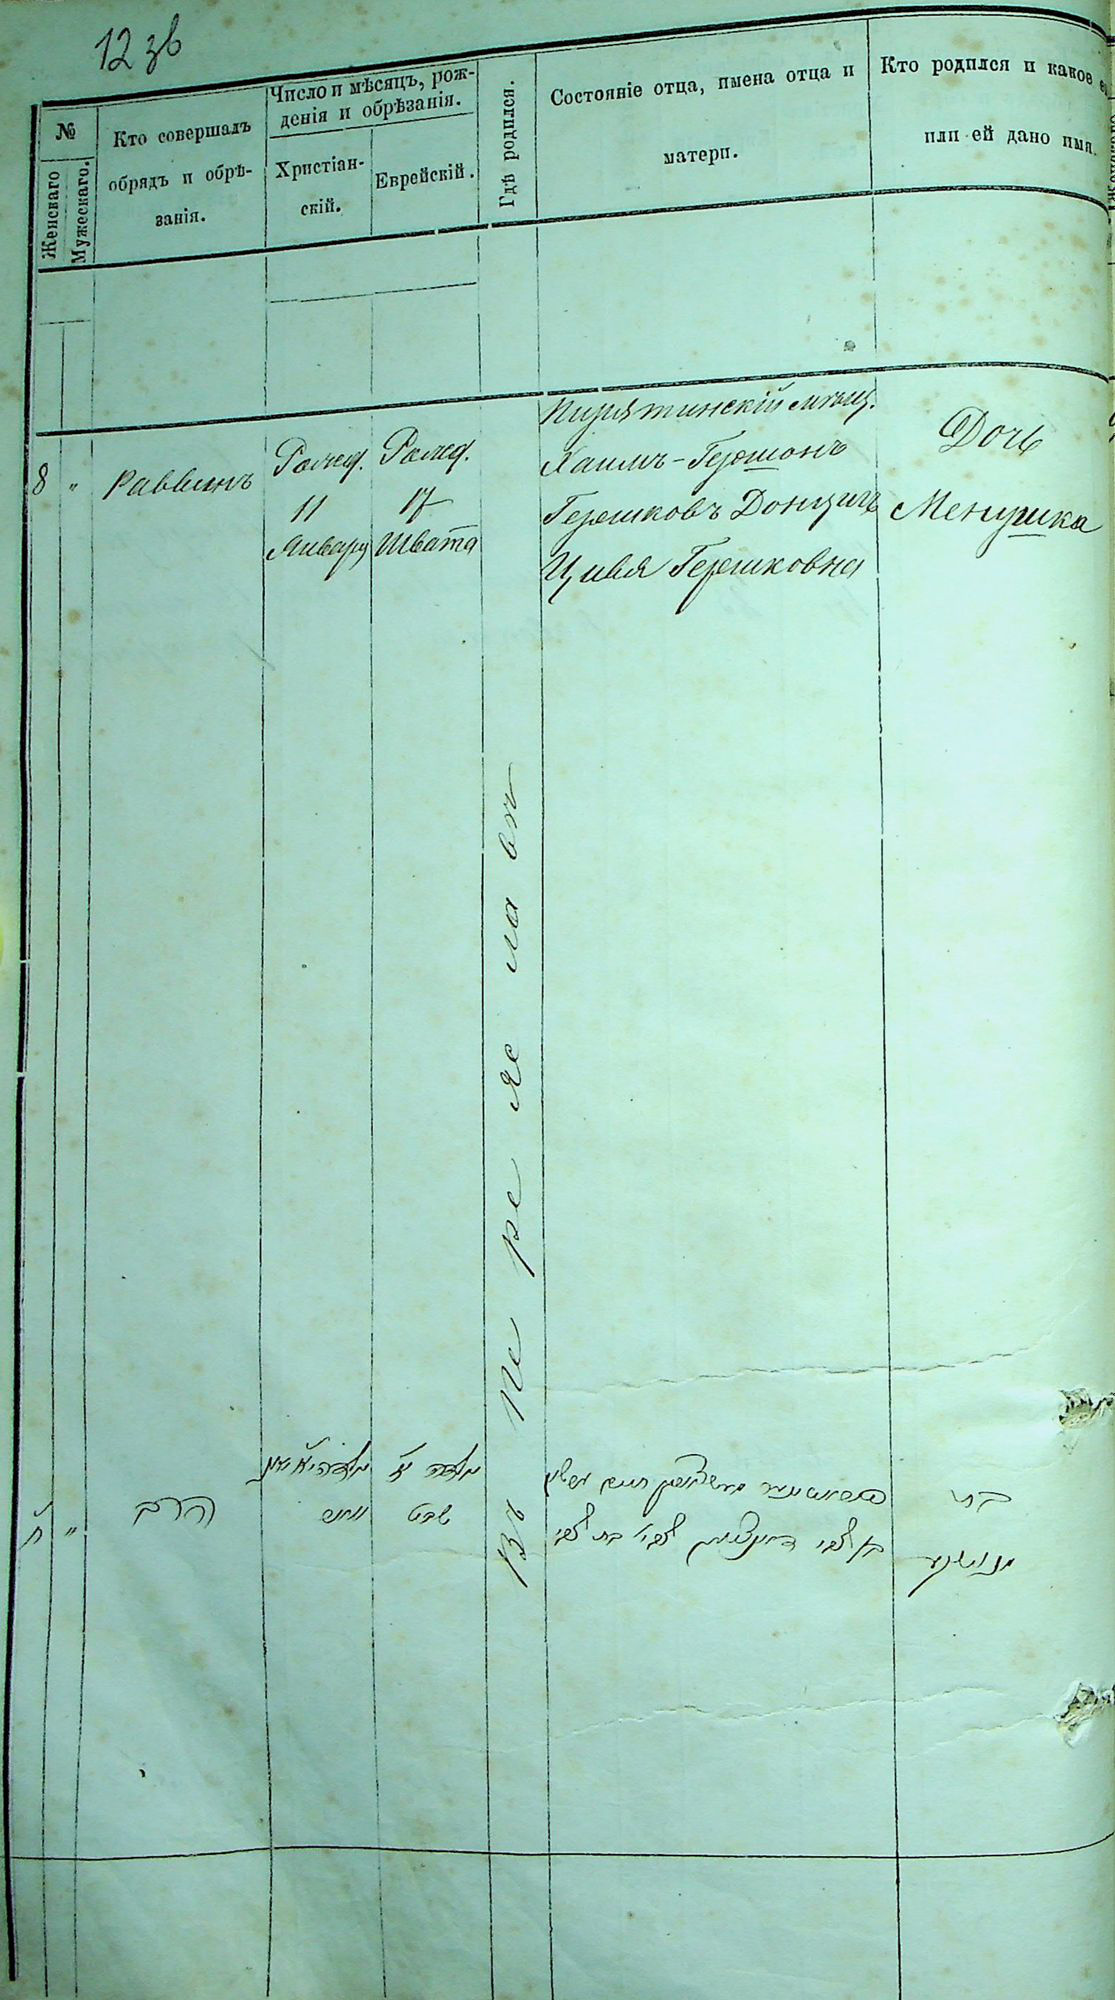 12 зв
№
Женскаго
Мужескаго.
Кто совершалъ
обрядъ и обрѣ-
занія.
Число и мѣсяцъ, рож-
денія и обрѣзанія.
Христіан-
скій.
Еврейскій.
Гдѣ родился.
Состояніе отца, имена отца и
матери.
Кто родился и какое
или ей дано имя.
8 " Раввинъ
Рожд.
11
Января
Рожд.
17
Швата
Въ Переяславѣ
Пирятинскій мѣщ.
Хаимъ-Гершонъ
Гершковъ Донцигъ
Цивля Гершковна
Дочь
Менушка
ח " הרב
שבט
בת